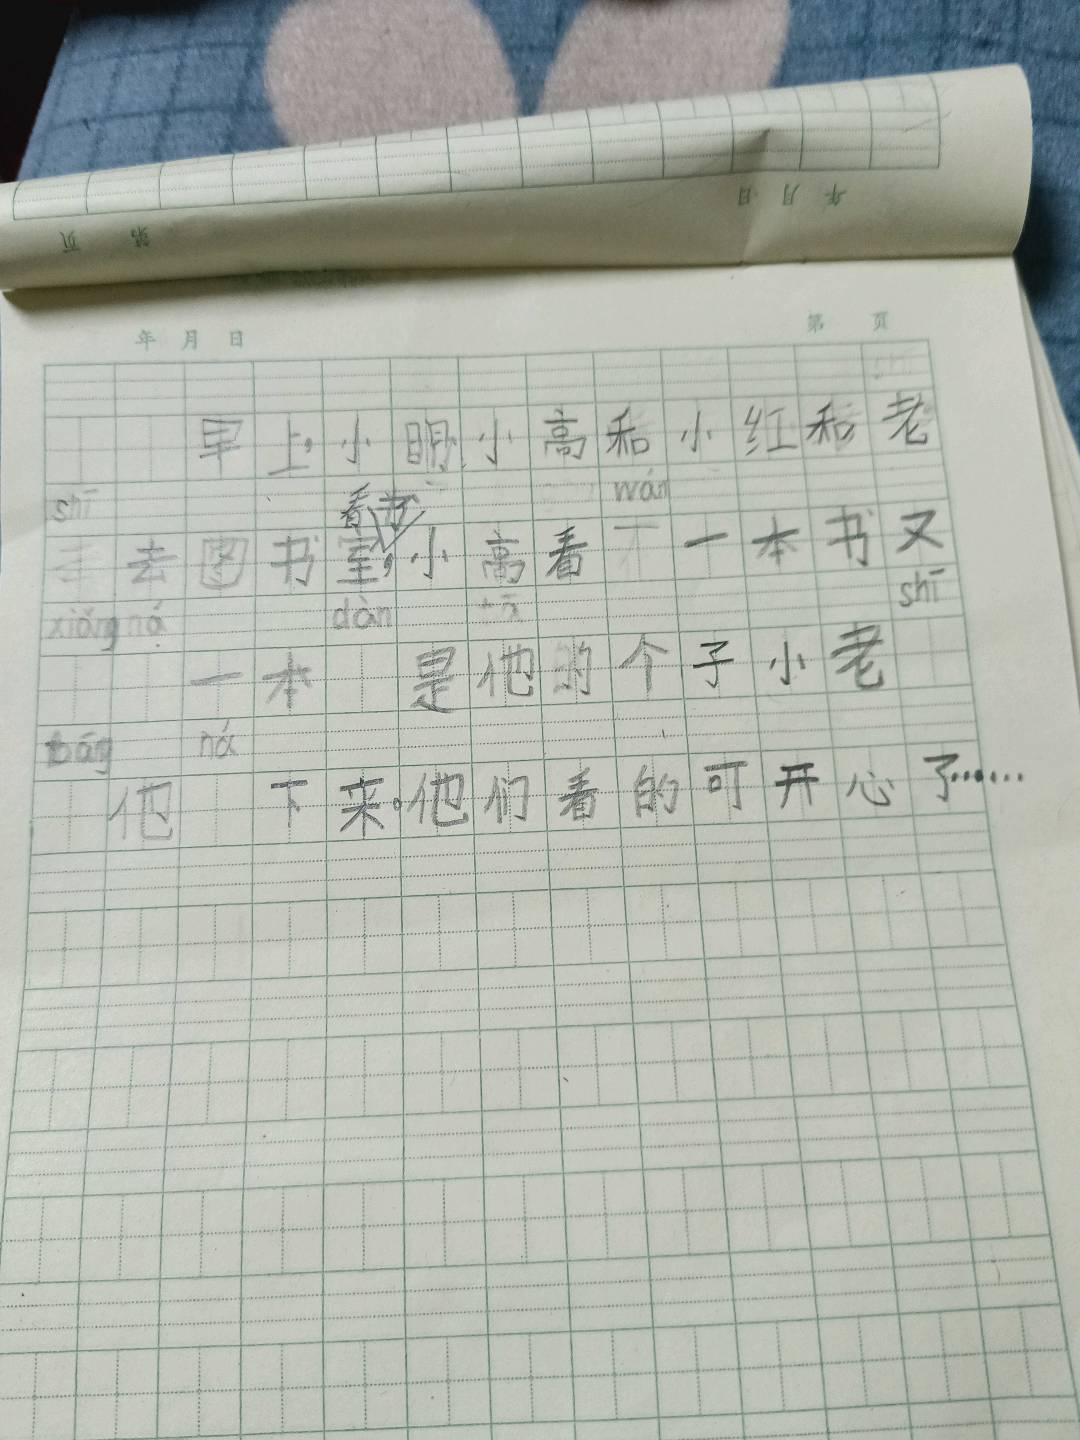 年 月 日 第 页
年 月 日 第 页
早上，小明、小高和小红和老
shī 看书 wán
去图书室，小高看一本书又
xiǎng ná dàn shī
一本 是他的个子小老
bāng ná
他 下来。他们看的可开心了……